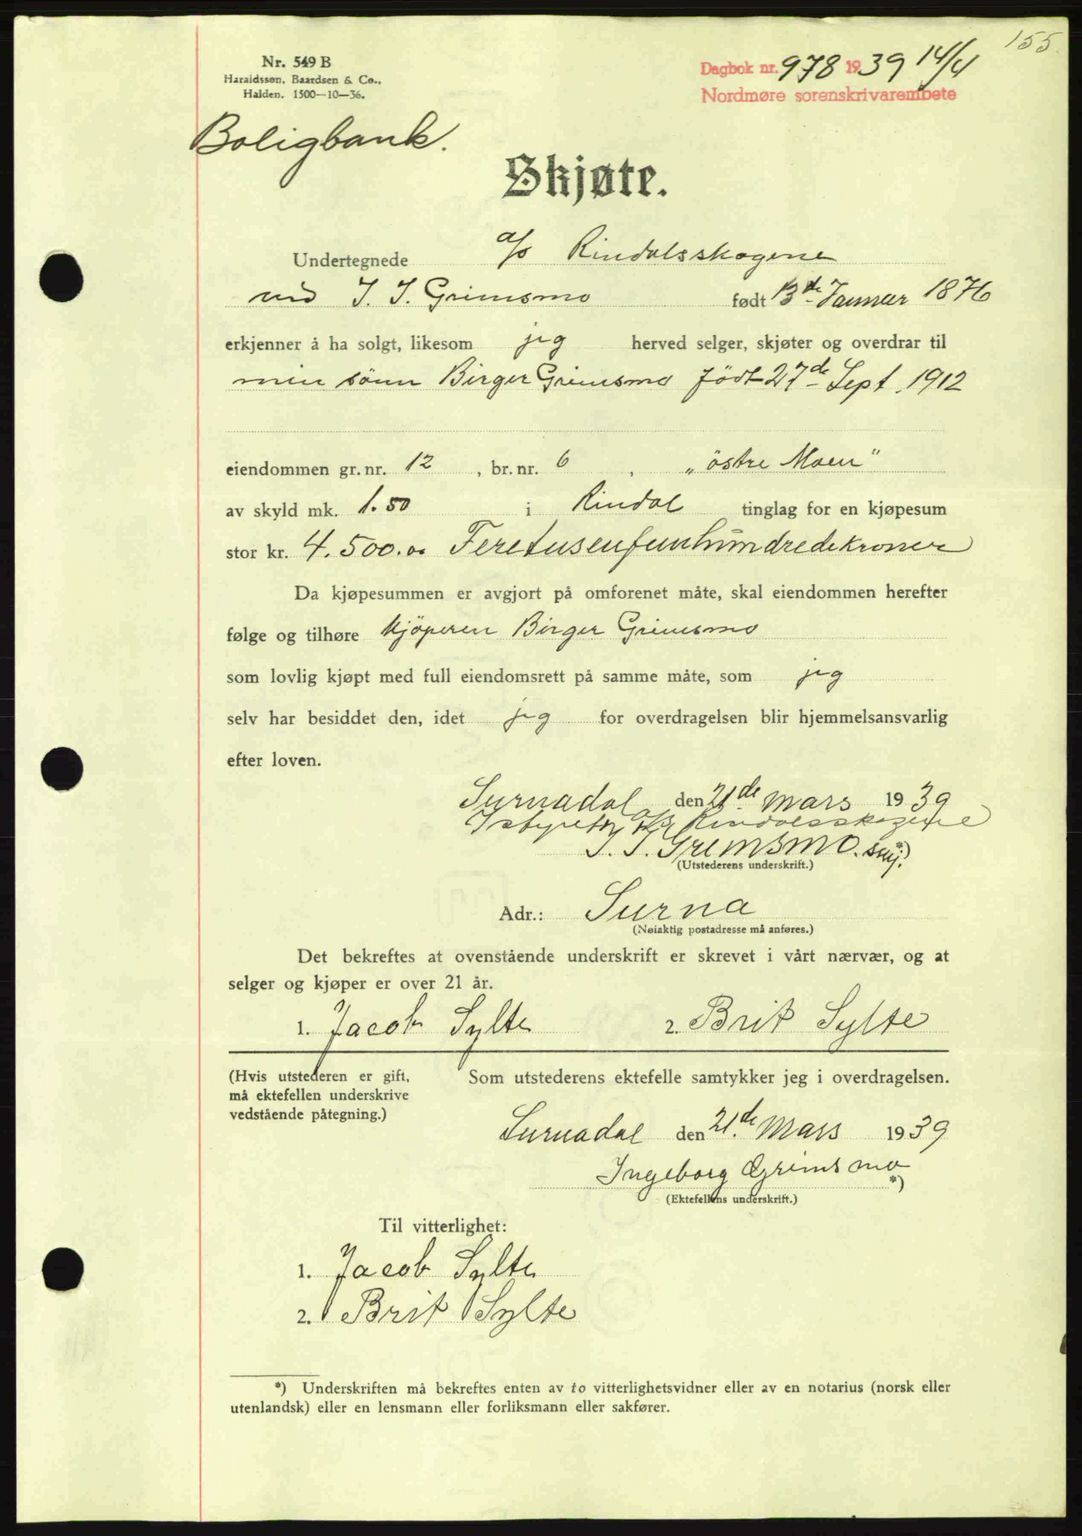 155.
Nr. 549 B
Haraldssøn, Baardsen & Co.,
Halden. 1500—10—36.
Dagbok nr. 978 1939 14/4
Nordmøre sorenskrivarembete
Boligbank.
Skjøte.
Undertegnede a/s Rindalsskogene
ved J. J. Grimsmo født 13de Januar 1876
erkjenner å ha solgt, likesom jeg herved selger, skjøter og overdrar til
min sönn Birger Grimsmo född 27de Sept. 1912
eiendommen gr. nr. 12, br. nr. 6, „östre Moen"
av skyld mk. 1.50 i Rindal tinglag for en kjøpesum
stor kr. 4.500.00 Firetusenfemhundredekroner
Da kjøpesummen er avgjort på omforenet måte, skal eiendommen herefter
følge og tilhøre kjöperen Birger Grimsmo
som lovlig kjøpt med full eiendomsrett på samme måte, som jeg
selv har besiddet den, idet jeg for overdragelsen blir hjemmelsansvarlig
efter loven.
Surnadal den 21de mars 1939
I styret for a/s Rindalsskogene
J. J. Grimsmo. snj. *)
(Utstederens underskrift.)
Adr.: Surna
(Nøiaktig postadresse må anføres.)
Det bekreftes at ovenstående underskrift er skrevet i vårt nærvær, og at
selger og kjøper er over 21 år.
1. Jacob Sylte 2. Brit Sylte
(Hvis utstederen er gift,
må ektefellen underskrive
vedstående påtegning.)
Som utstederens ektefelle samtykker jeg i overdragelsen.
Surnadal den 21.de Mars 1939
Ingeborg Grimsmo *)
(Ektefellens underskrift.)
Til vitterlighet:
1. Jacob Sylte
2. Brit Sylte
*) Underskriften må bekreftes enten av to vitterlighetsvidner eller av en notarius (norsk eller
utenlandsk) eller en lensmann eller forliksmann eller sakfører.